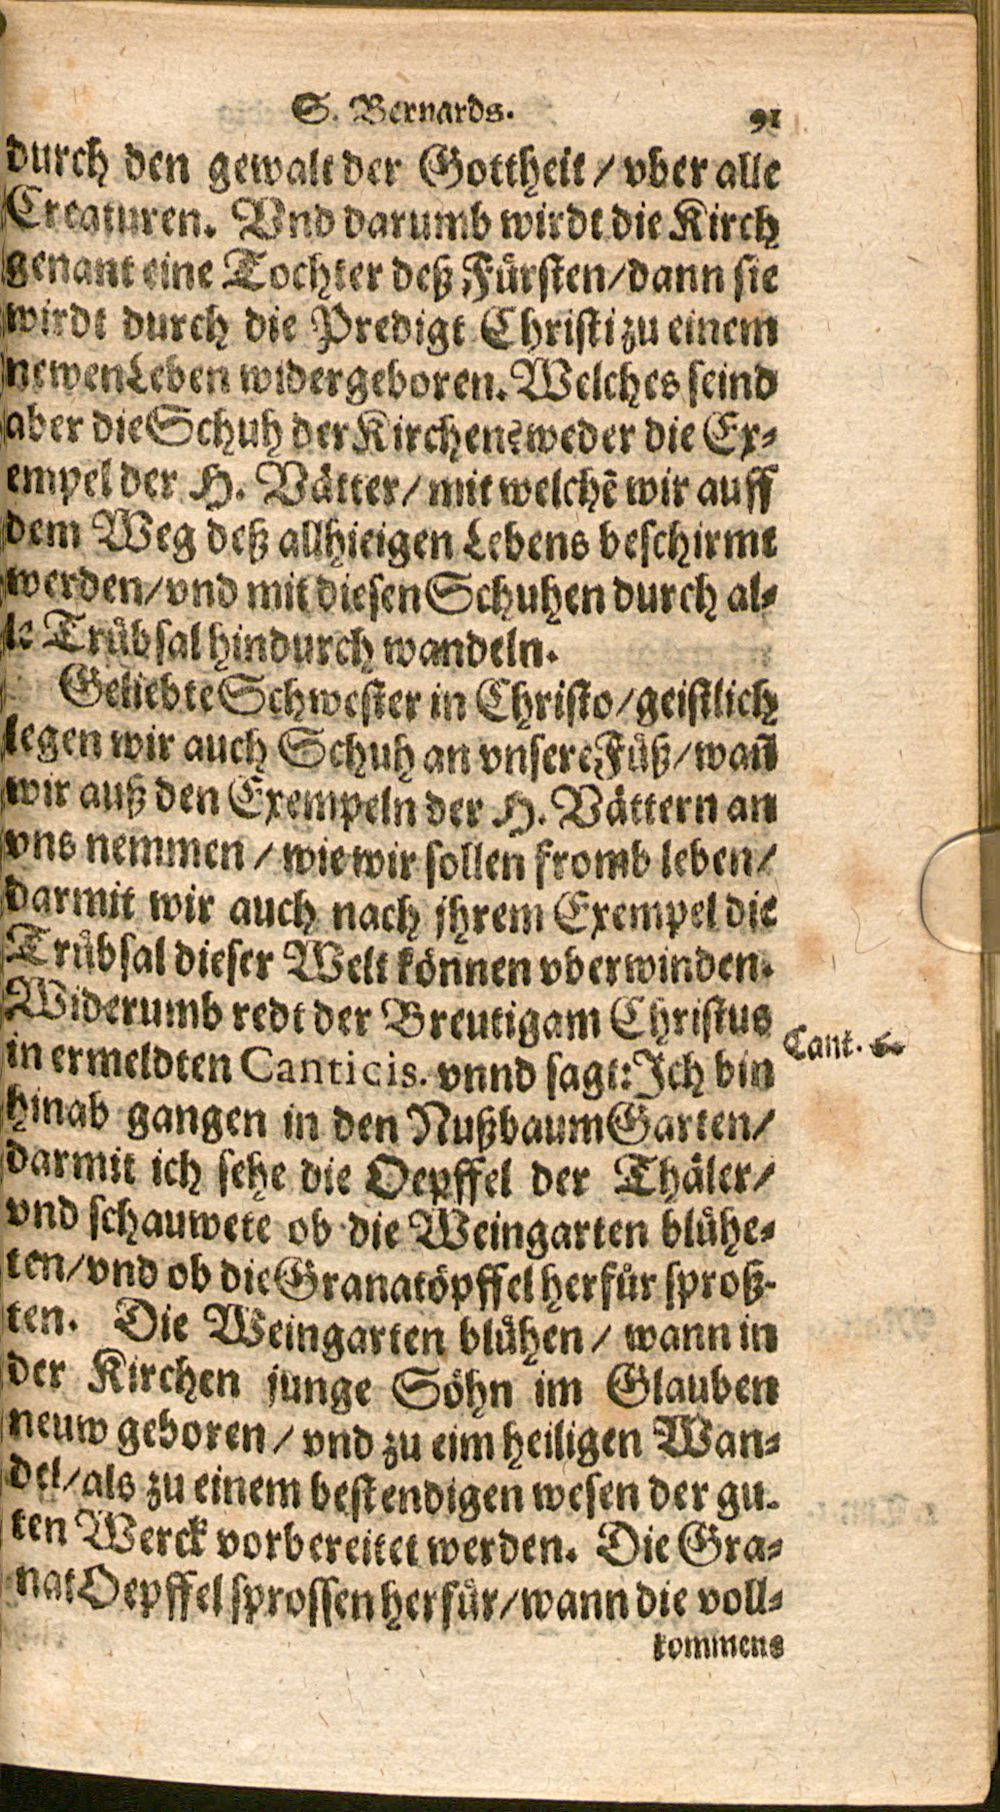 S. Bernards. 91
durch den gewalt der Gottheit / vber alle
Creaturen. Vnd darumb wirdt die Kirch
genant eine Tochter deß Fürsten/dann sie
wirdt durch die Predigt Christi zu einem
newen Leben widergeboren. Welches seind
aber die Schuh der Kirchen? weder die Ex-
empel der H. Vätter/ mit welchē wir auff
dem Weg deß allhieigen Lebens beschirmt
werden/vnd mit diesen Schuhen durch al-
le Trübsal hindurch wandeln.
Geliebte Schwester in Christo/geistlich
legen wir auch Schuh an vnsere Füß/wañ
wir auß den Exempeln der H. Vättern an
vns nemmen / wie wir sollen fromb leben/
darmit wir auch nach jhrem Exempel die
Trübsal dieser Welt können vberwinden.
Widerumb redt der Breutigam Christus
Cant. 6.
in ermeldten Canticis. vnnd sagt: Ich bin
hinab gangen in den Nußbaum Garten/
darmit ich sehe die Oepffel der Thäler/
vnd schauwete ob die Weingarten blühe-
ten/vnd ob die Granatöpffel herfür sproß-
ten. Die Weingarten blühen / wann in
der Kirchen junge Söhn im Glauben
neuw geboren / vnd zu eim heiligen Wan-
del/als zu einem bestendigen wesen der gu-
ten Werck vorbereitet werden. Die Gra-
nat Oepffel sprossen herfür/wann die voll-
kommens